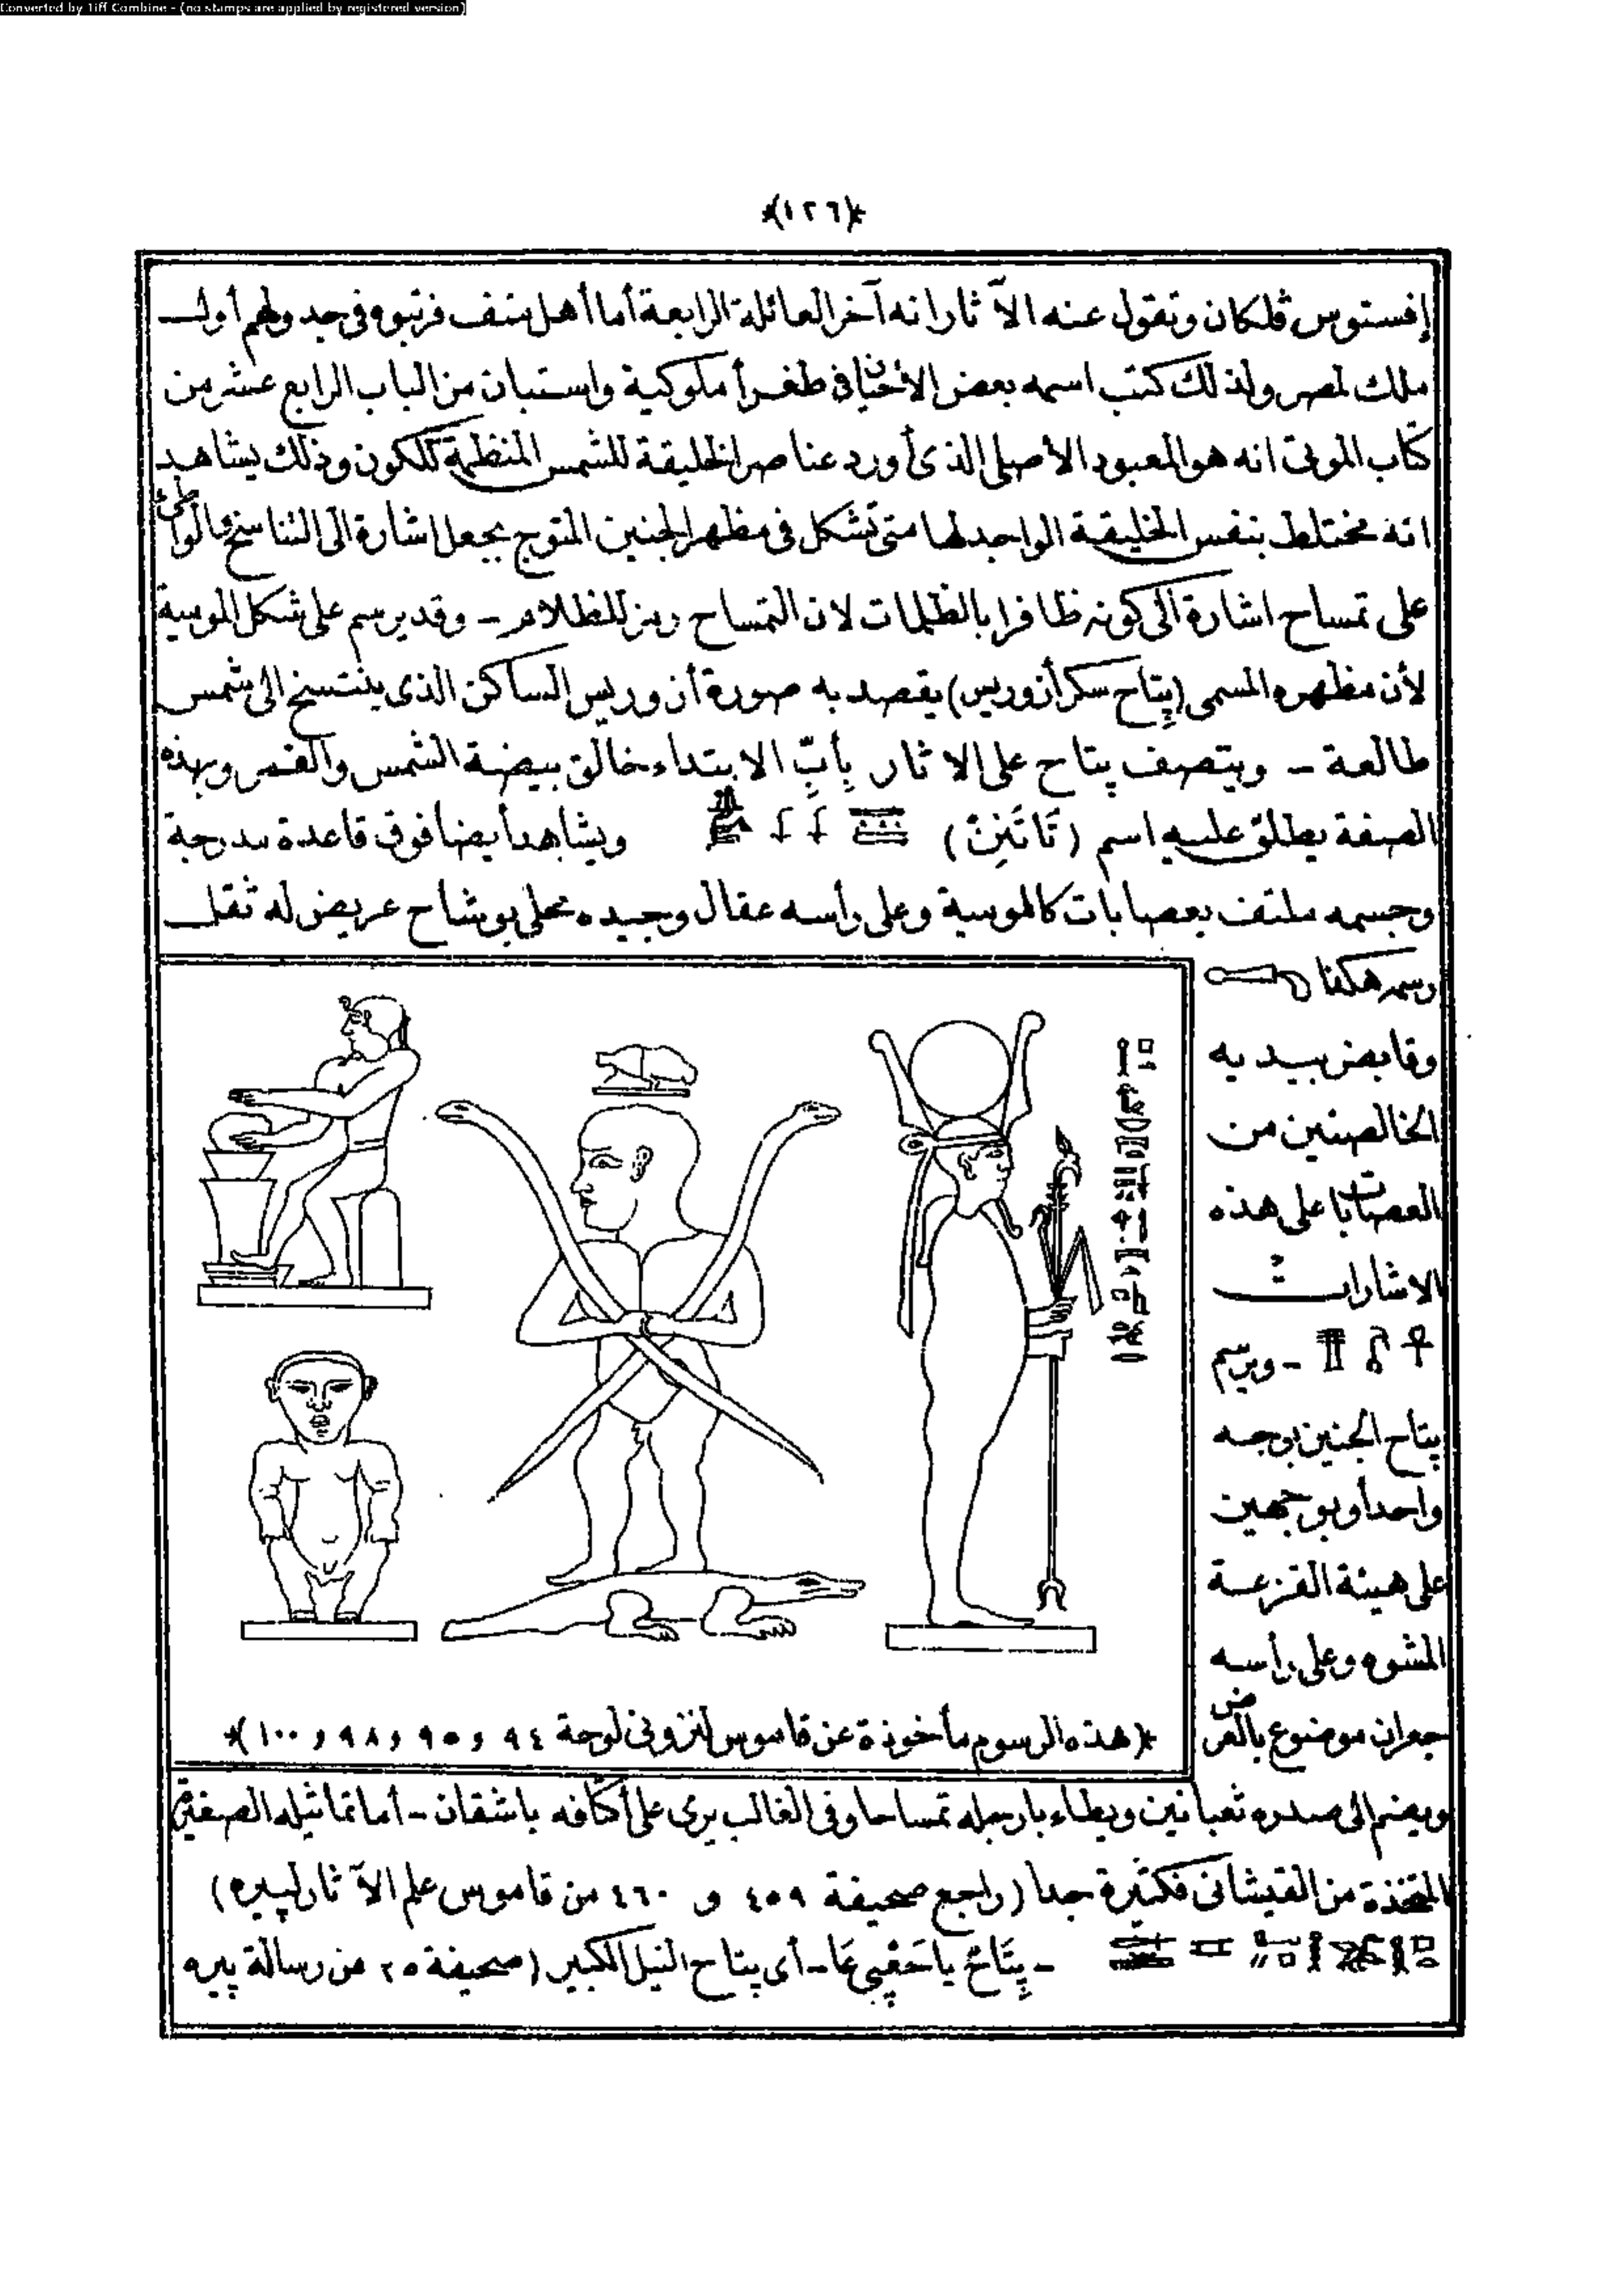 Converted by Tiff Combine - (no stamps are applied by registered version)
﴿١٢٦﴾
إفستوس ڤلكان وتقول عنه الآثار انه آخر العائلة الرابعة أما أهل منف فرتبوه فى جدولهم أول
ملك لمصر ولذلك كتب اسمه بعض الأحيان فى طغرأ ملوكية واستبان من الباب الرابع عشر من
كتاب الموتى انه هو المعبود الأصلى الذى أورد عناصر الخليقة للشمس المنظمة للكون وذلك يشاهد
انه مختلط بنفس الخليقة الواجد لها متى تشكل فى مظهر الجنين المتوج بجعل اشارة الى التناسخ والواطئ
على تمساح اشارة الى كونه ظافرا بالظلمات لان التمساح رمز للظلام - وقد يرسم على شكل الموسية
لأن مظهره المسمى (پتاح سكر أزوريس) يقصد به صورة أزوريس الساكن الذى ينتسخ الى شمس
طالعة - ويتصف پتاح على الاثار بأبّ الابتداء خالق بيضة الشمس والقمر وبهذه
الصفة يطلق عليه اسم (تَاتَنِنْ) ويشاهد أيضا فوق قاعدة مدرجة
وجسمه ملتف بعصابات كالموسية وعلى رأسه عقال وجيده محلى بوشاح عريض له ثقل
رسمه هكذا
وقابض بيديه
الخالصتين من
العصابات على هذه
الاشارات
- ويرسم
پتاح الجنين بوجه
واحد أو بوجهين
على هيئة القزعة
المشوه وعلى رأسه
جعران موضوع بالعرض
﴿هذه الرسوم مأخوذة عن قاموس لنزونى لوحة ٩٤ و ٩٥ و ٩٨ و ١٠٠﴾
ويضم الى صدره ثعبانين ويطاء بارجله تمساحا وفى الغالب يرى على أكتافه باشقان - أما تماثيله الصغيرة
المتخذة من القيشانى فكثيرة جدا (راجع صحيفة ٤٥٩ و ٤٦٠ من قاموس علم الآثار لپيره)
- پتَاحْ يا حَعْپِى عَا - أى پتاح النيل الكبير (صحيفة ٢٥ من رسالة پيره